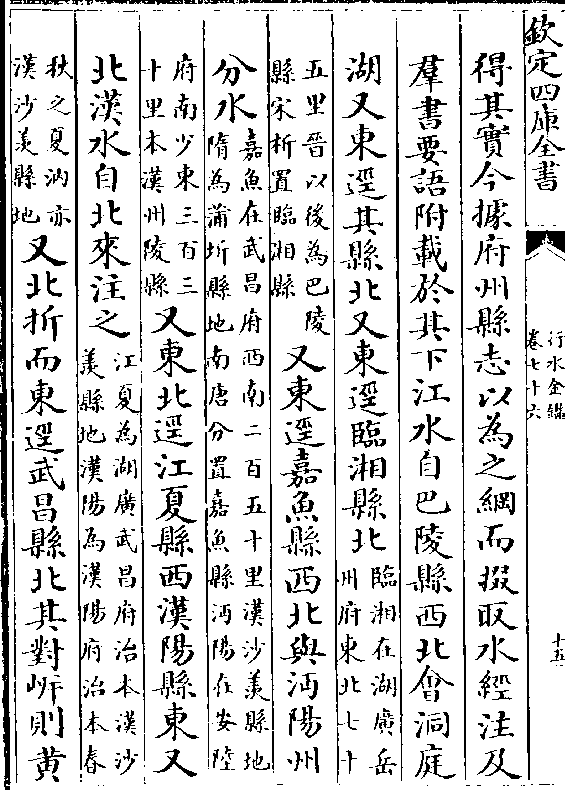 欽定四庫全書
行水金鑑
卷七十六
十五
得其實今據府州縣志以為之綱而掇取水經注及
羣書要語附載於其下江水自巴陵縣西北會洞庭
湖又東逕其縣北又東逕臨湘縣北
臨湘在湖廣岳
州府東北七十
五里晉以後為巴陵
縣宋析置臨湘縣
又東逕嘉魚縣西北與沔陽州
分水
嘉魚在武昌府西南二百五十里漢沙羨縣地
隋為蒲圻縣地南唐分置嘉魚縣沔陽在安陸
府南少東三百三
十里本漢州陵縣
又東北逕江夏縣西漢陽縣東又
北漢水自北來注之
江夏為湖廣武昌府治本漢沙
羨縣地漢陽為漢陽府治本春
秋之夏汭亦
漢沙羨縣地
又北折而東逕武昌縣北其對岍則黄